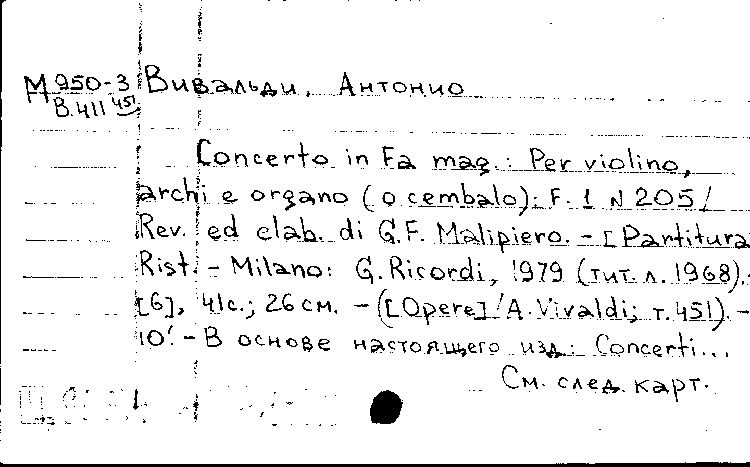 М 950-3 Вивальди, Антонио
В.411 451
Concerto in Fa mag.: Per violino,
archi e organo (o cembalo): F. 1 N 205 /
Rev. ed elab. di G.F. Malipiero. - [Partitura
Rist. - Milano: G. Ricordi, 1979 (тит. л. 1968).-
[6], 41с.; 26 см. - ([Opere] / A. Vivaldi; т. 451). -
10'. - В основе настоящего изд.: Concerti...
См. след. карт.